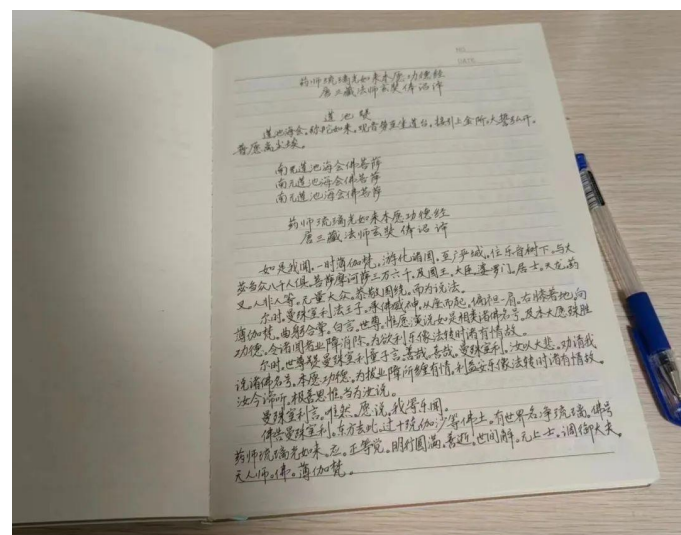 NO.
DATE
药师琉璃光如来本愿功德经
唐三藏法师玄奘奉诏译
莲池赞
莲池海会，弥陀如来，观音势至坐莲台，接引上金阶，大誓弘开，
普愿离尘埃。
南无莲池海会佛菩萨
南无莲池海会佛菩萨
南无莲池海会佛菩萨
药师琉璃光如来本愿功德经
唐三藏法师玄奘奉诏译
如是我闻，一时薄伽梵，游化诸国，至广严城，住乐音树下，与大
苾刍众八千人俱，菩萨摩诃萨三万六千，及国王，大臣，婆罗门，居士，天龙药
叉，人非人等，无量大众，恭敬围绕，而为说法。
尔时，曼殊室利法王子，承佛威神，从座而起，偏袒一肩，右膝著地，向
薄伽梵，曲躬合掌，白言，世尊，惟愿演说如是相类诸佛名号，及本大愿殊胜
功德，令诸闻者业障消除，为欲利乐像法转时诸有情故。
尔时，世尊赞曼殊室利童子言，善哉，善哉，曼殊室利，汝以大悲，劝请我
说诸佛名号，本愿功德，为拔业障所缠有情，利益安乐像法转时诸有情故，
汝今谛听，极善思惟，当为汝说。
曼殊室利言，唯然，愿说，我等乐闻。
佛告曼殊室利，东方去此，过十殑伽沙等佛土，有世界名净琉璃，佛号
药师琉璃光如来，应，正等觉，明行圆满，善逝，世间解，无上士，调御丈夫，
天人师，佛，薄伽梵。